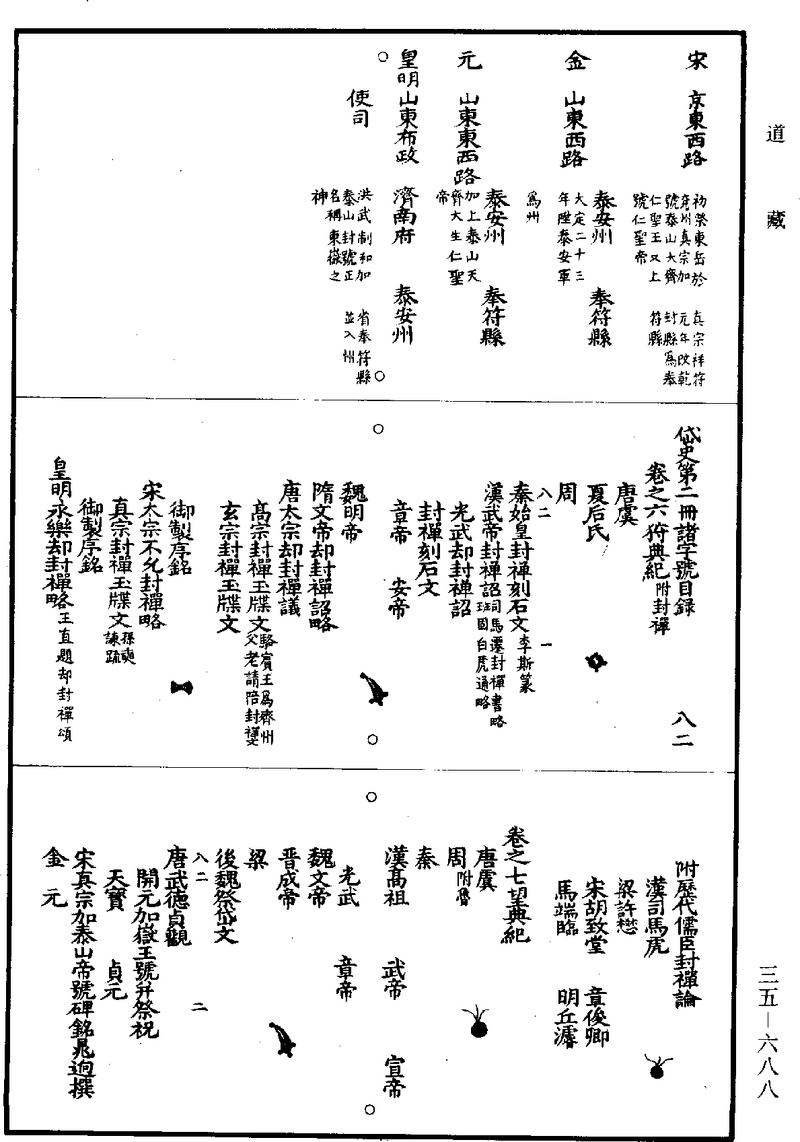 道藏
宋　京東西路
初祭東岳於兗州真宗加號泰山大齊仁聖王又上號仁聖帝
真宗祥符元年改乾封縣為奉符縣
金　山東西路　泰安州　奉符縣
大定二十三年陞泰安軍為州
元　山東東西路　泰安州　奉符縣
加上泰山天齊大生仁聖帝
皇明　山東布政使司　濟南府　泰安州
洪武制和加泰山封號正名稱東嶽之神
省奉符縣並入州
岱史第二冊諸字號目錄　八二
卷之六狩典紀附封禪
唐虞
夏后氏
周
八二　一
秦始皇封禅刻石文李斯篆
漢武帝封禅詔司馬遷封禅書略　班固白虎通略
光武却封禅詔
封禅刻石文
章帝　安帝
魏明帝
隋文帝却封禅詔略
唐太宗却封禅議
高宗封禅玉牒文駱賓王為齊州父老請陪封禅文
玄宗封禅玉牒文
御製序銘
宋太宗不允封禅略
真宗封禅玉牒文孫奭諫疏
御製序銘
皇明永樂却封禅略王直題却封禅頌
附歷代儒臣封禪論
漢司馬彪
梁許懋
宋胡致堂　章俊卿
馬端臨　明丘濬
卷之七望典紀
唐虞
周附魯
秦
漢高祖　武帝　宣帝
光武　章帝
魏文帝
晋成帝
梁
後魏祭岱文
八二　二
唐武德貞觀
開元加嶽王號升祭祝
天寶　貞元
宋真宗加泰山帝號碑銘晁迥撰
金　元
三五－六八八